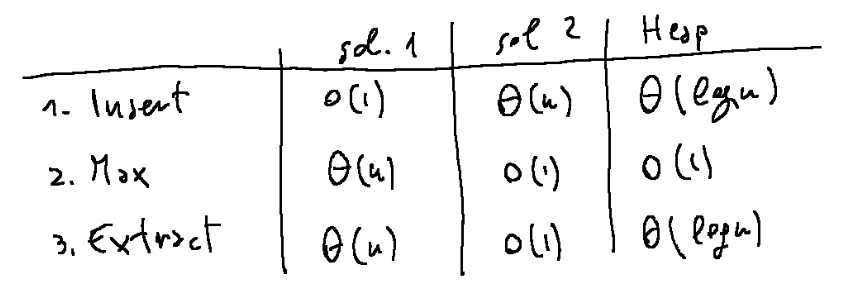 sol. 1 sol 2 Heap
1. Insert O(1) Θ(n) Θ(log n)
2. Max Θ(n) O(1) O(1)
3. Extract Θ(n) O(1) Θ(log n)